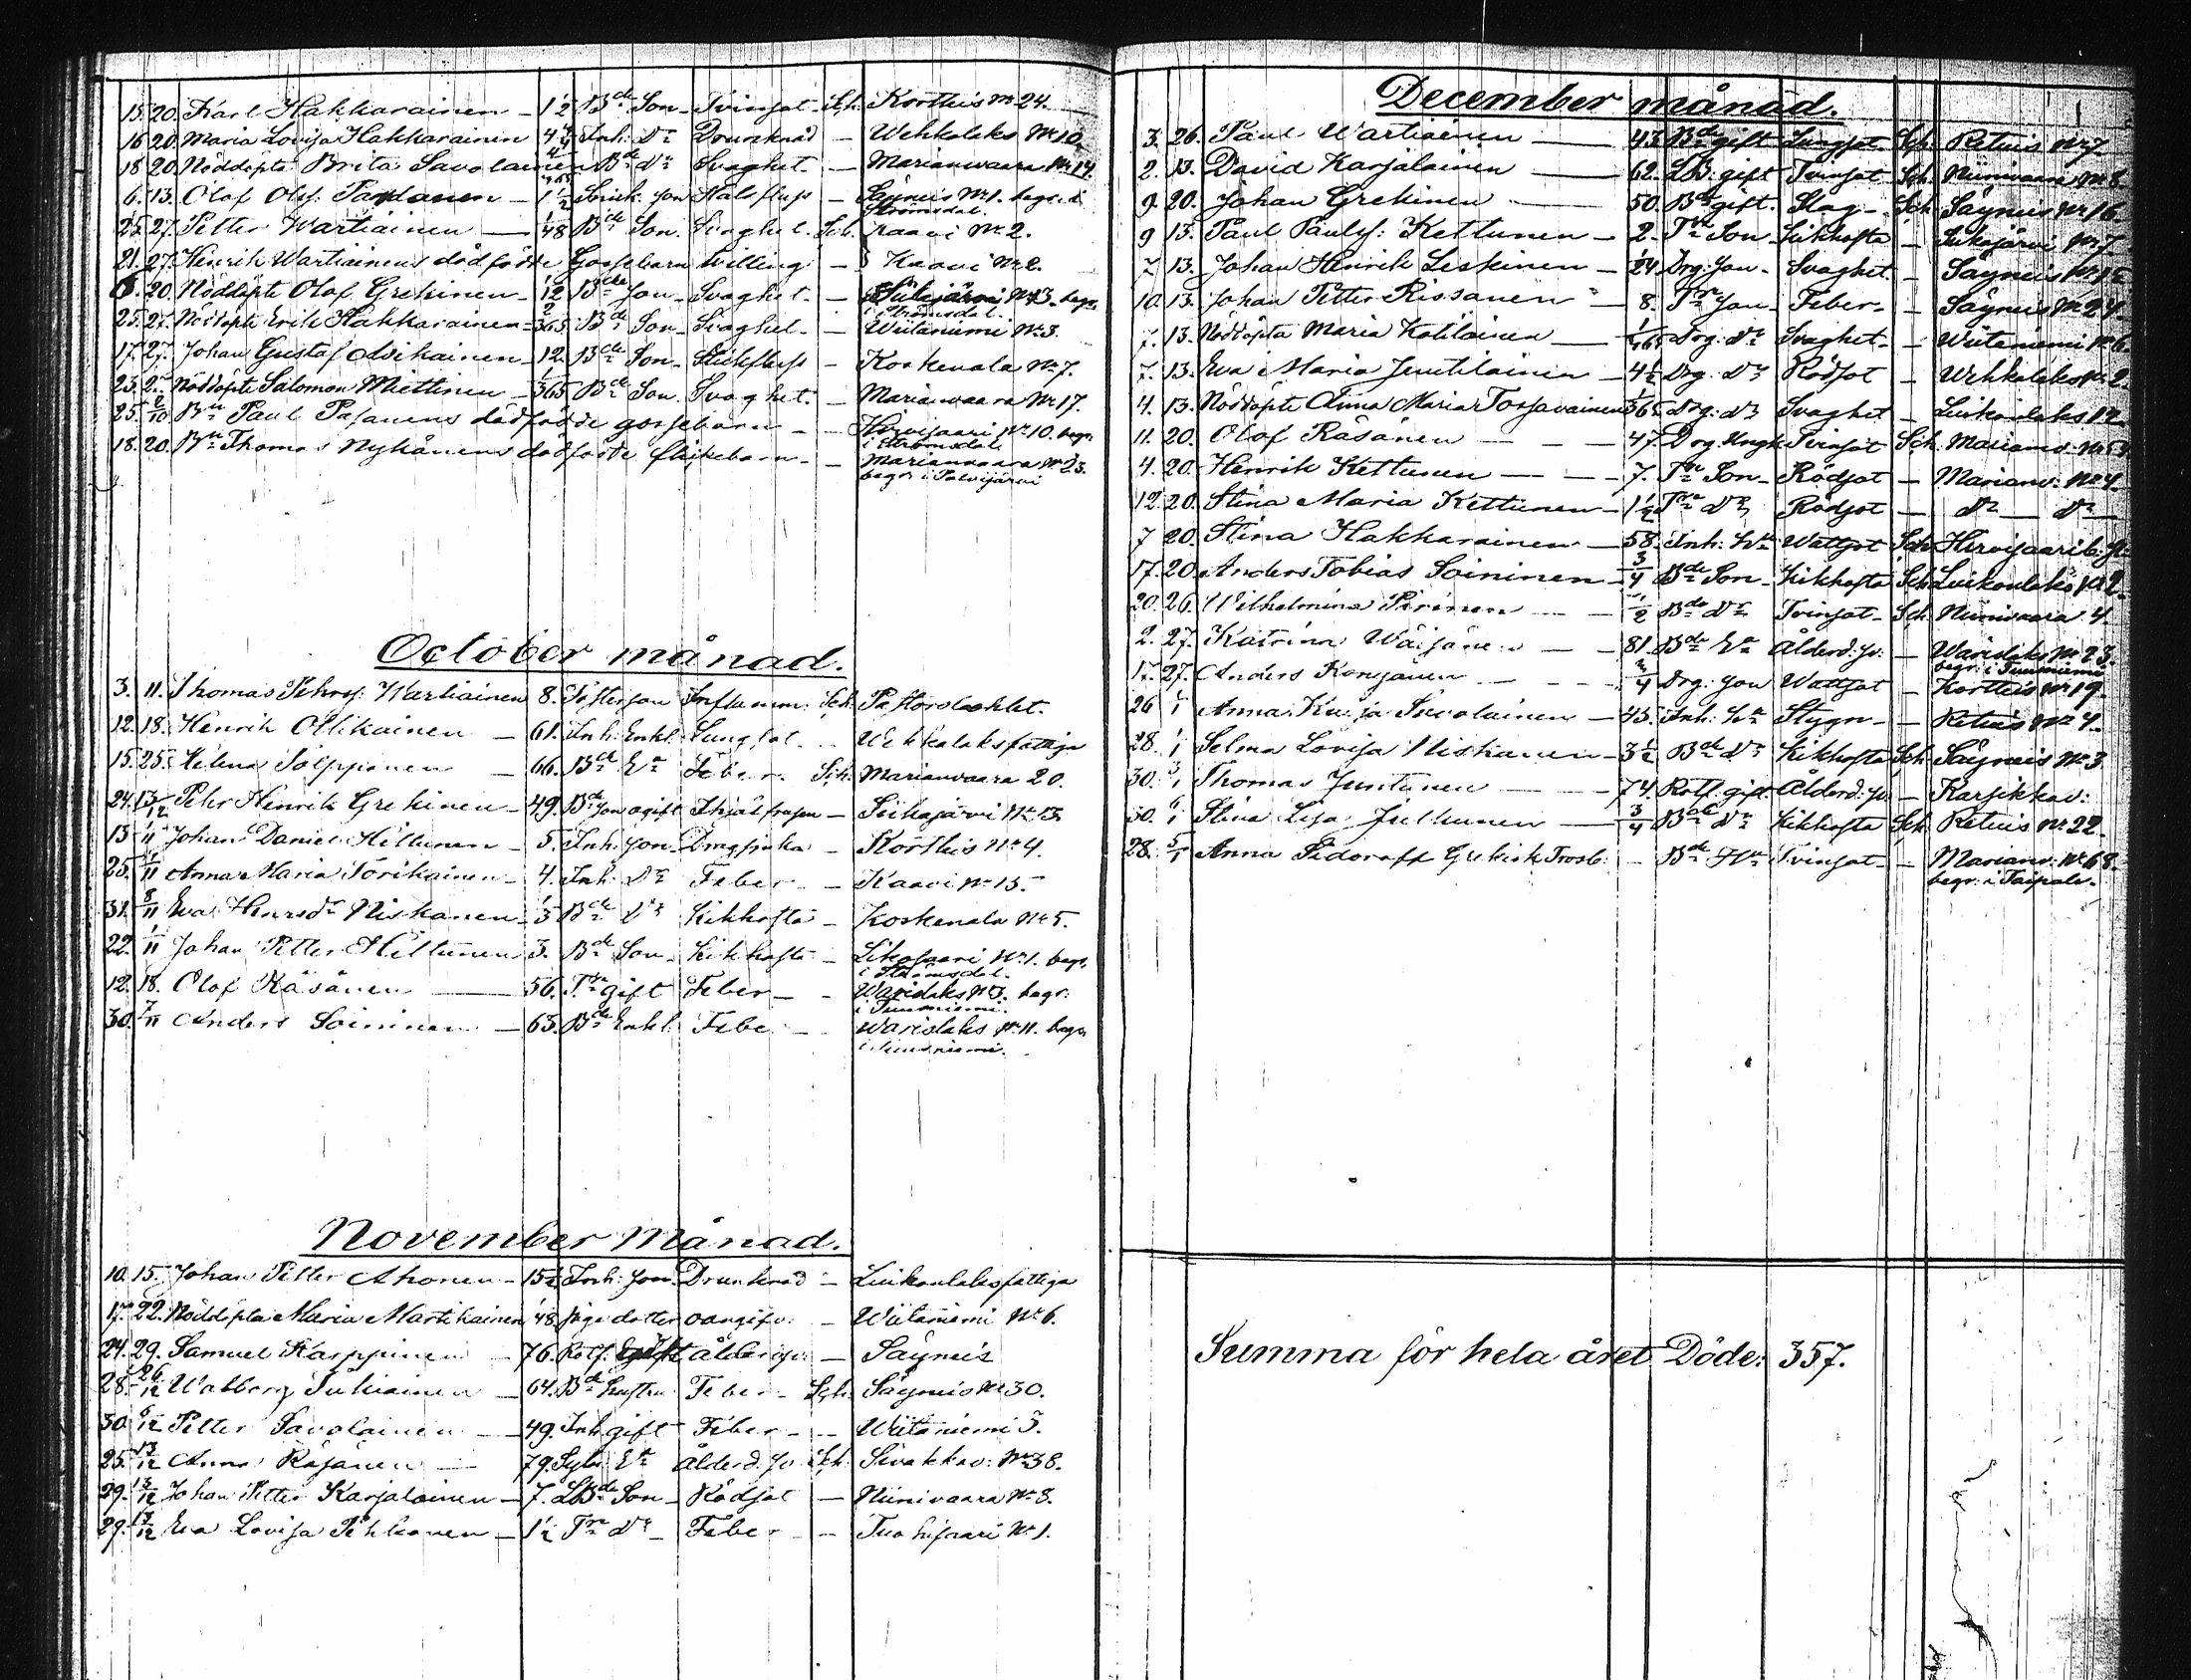 15. 20. Karl Hakkarainen — 1/2 Bde Son Tvinsot Sch. Kortteis No 24.
16 20 Maria Lovisa Hakkarainen 4 Inh: Dr Drunknad — Wehkalaks No 10.
18 20 Nöddöpta Brita Savolainen Bde Dr Svaghet — Marianvaara No 14
6. 13. Olof Ols: — 1 1/2 Son Halsfluss — Säyneis No 1. begr: i Strömsdal.
25. 27. Petter Wartiainen — 1/48 Bde Son. Sch. Kaavi No 2.
21. 27. Henrik Wartiainens dödfödde Gossebarn tvilling — Kaavi No 2.
6. 20. Nöddöpte Olof Grekinen — 1/12 Son Svaghet — Siikajärvi No 13. begr: i Strömsdal.
25. 27. Nöddöpte Erik Hakkarainen 2/365 Bde Son Svaghet — Wiitaniemi No 3.
17. 27. Johan Gustaf — 12. Bde Son Stickfluss — Koskenala No 7.
23. Nöddöpte Salomon Miettinen 1/365 Bde Son Svaghet — Marianvaara No 17.
25. 2/10 Bn Paul Pasanens dödfödde gossebarn — Hirvisaari No 10. begr: i Strömsdal.
18. 20. Bn Thomas Nykänens dödfödde flickebarn — Marianvaara No 23. begr: i Polvijärvi
October månad.
3. 11. Thomas Pehrs: Wartiainen 8. Fosterson Inflamm: Sch. Pastorsbohlet.
12. 18. Henrik Ollikainen — 61. Inh: Enkl: Lungsot — Wehkalaksfattiga
15. 25. Helena Tolppanen — 66. Bde Ea Feber Sch. Marianvaara 20.
24. 13/12 Pehr Henrik Grekinen — 49. Bde Son ogift Ihjälfrusen — Siikajärvi No 13.
13 /11 Johan Daniel Hiltunen — 5. Inh: Son — Kortteis No 4.
25. 1/11 Anna Maria Torikainen — 4. Inh: Dr Feber — Kaavi No 15.
31. 8/11 Eva Henrsdr Niskanen — 1/3 Bde Dr Kikhosta — Koskenala No 5.
22. 1/11 Johan Petter Hiltunen 3. Bde Son Kikhosta — No 1. begr: i Strömsdal.
12. 18. Olof Räsänen — 56. Trp gift Feber — Warislaks No 3. begr: i Tuusniemi.
30. 7/11 Anders Soininen — 63. Bde Enkl: Feber — Warislaks No 11. begr: i Tuusniemi.
November Månad.
10. 15. Johan Petter Ahonen — 15 1/2 Inh: Son Drunknad — Luikonlaksfattiga
17. 22. Nöddöpta Maria Martikainen 1/48. Piga dotter oangifv: — Wiitaniemi No 6.
24. 29. Samuel Karppinen — 76. Rotf. gift — Säyneis
28. 26/12 Walborg Tukiainen — 64. Bde hustru Feber Sch. Säyneis No 30.
30. 6/12 Petter Savolainen — 49. Inh gift Feber — Wiitaniemi 3.
25. 13/12 Anna Räsänen — 79. Sytn: Ea Ålderd: Sv: Sch. Sivakkav: No 38.
29. 13/12 Johan Petter Karjalainen — 7. LBde Son Rödsot — Niinivaara No 8.
29. 13/12 Eva Lovisa Pehkonen — 1 1/2 Trp Dr Feber — No 1.
December månad.
3. 26. Paul Wartiainen — 43. Bde gift Lungsot Sch. Retuis No 7.
2. 13. David Karjalainen — 62. LB: gift Tvinsot Sch. Niinivaara No 8.
9. 20. Johan Grekinen — 50. Bde gift. Slag Sch. Säyneis No 16.
9 13. Paul Pauls: Kettunen — 2. Trp Son Kikhosta — Siikajärvi No 7.
7 13. Johan Henrik Leskinen — 1/24 Drg: Son Svaghet — Säyneis No 15
10. 13. Johan Petter Rissanen — 8. Trp Son Feber — Säyneis No 24.
7. 13. Nöddöpta Maria Kotilainen — 1/365 Drg: Dr Svaghet — Wiitaniemi No 6.
7. 13. Eva Maria Jeuntilainen — 4 1/2 Drg: Dr Rödsot — Wehkalaks No 2.
4. 13. Nöddöpte Anna Maria Tossavainen 365 Drg: Dr Svaghet — Luikonlaks 14.
11. 20. Olof Räsänen — 47. Drg Ungk Tvinsot Sch. Marianv: No 59
4. 20. Henrik Kettunen — 7. Trp Son Rödsot — Marianv: No 4.
12. 20. Stina Maria Kettunen — 1 1/2 Trp Dr Rödsot — Do — Do
7 20. Stina Hakkarainen — 58. Inh: Hu Wattsot Sch. Hirvisaari
17. 20. Anders Tobias Soininen — 3/4 Bde Son Kikhosta Sch. Luikonlaks No 2.
20. 26. Wilhelmina Pirinen — 1/2 Bde Dr Tvinsot Sch. Niinivaara 4.
2. 27. Katrina Wäisänen — 81. Bde Ea Ålderd: Sv: — Warislaks No 23. begr: i Tuusniemi
17. 27. Anders Konsanen — 3/4 Drg: Son Wattsot — Kortteis No 19.
26 6/1 Anna Kaisa Savolainen — 45. Inh: Hu Stygn — Retuis No 4.
28. 6/1 Selma Lovisa Niskanen — 3 1/2 Bde Dr Kikhosta Sch. Säyneis No 3.
30. 3/1 Thomas Juntunen — 74. Rotf. gift. Ålderd: Sv: — Karsikkov:
30. 6/1 Stina Lisa Julkunen — 3/4 Bde Dr Kikhosta Sch. Retuis No 22.
28. 5/1 Anna Sidoroff Grekisk Trosb: — Bde Hu Tvinsot — Marianv: No 68. begr: i Taipale.
Summa för hela året Döde: 357.